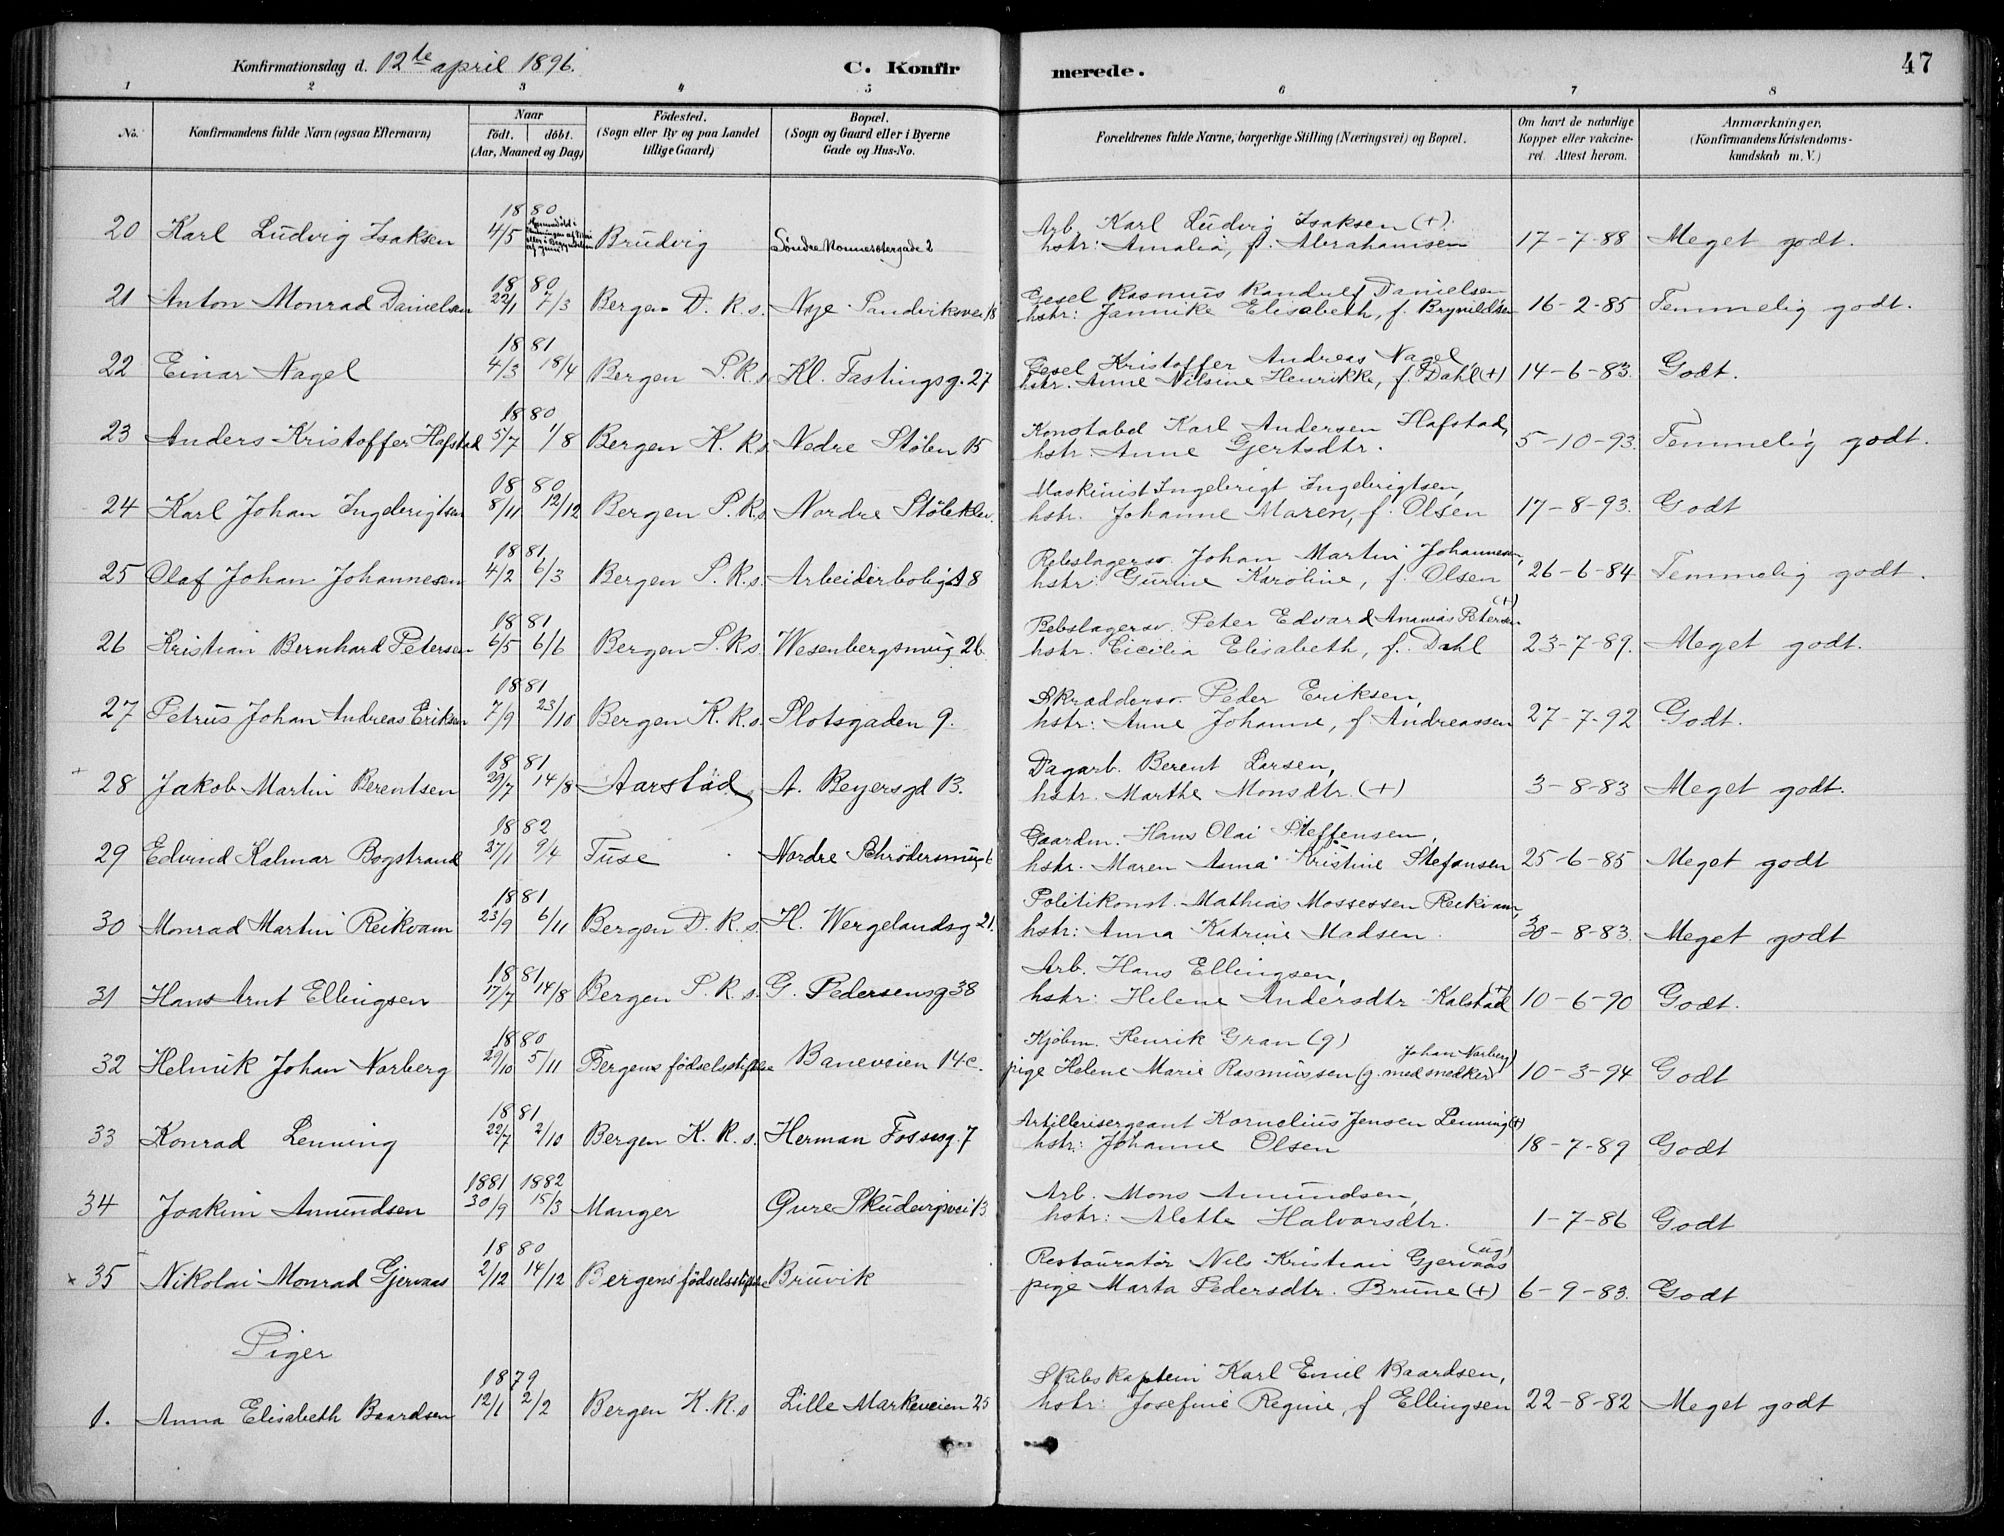 Konfirmationsdag d. 12te april 1896.
C. Konfirmerede.
47
1 2 3 4 5 6 7 8
No.
Konfirmandens fulde Navn (ogsaa Efternavn)
Naar
födt. döbt.
(Aar, Maaned og Dag)
Födested.
(Sogn eller By og paa Landet
tillige Gaard)
Bopæl.
(Sogn og Gaard eller i Byerne
Gade og Hus-No.
Forældrenes fulde Navne, borgerlige Stilling (Næringsvei) og Bopæl.
Om havt de naturlige
Kopper eller vakcine-
ret. Attest herom.
Anmærkninger.
(Konfirmandens Kristendoms-
kundskab m. V.)
1880
20 Karl Ludvig Isaksen 4/5 Brudvig Søndre 2 Arb. Karl Ludvig Isaksen (+)
hstr: Amalia, f. Abrahamsen 17-7-88 Meget godt.
1880
21 Anton Monrad Danielsen 22/1 7/3 Bergen D. K. s. Nye Sandviksvei 18 Gesel Rasmus Randulf Danielsen
hstr: Jannike Elisabeth, f. Brynildsen 16-2-85 Temmelig godt.
1881
22 Einar Nagel 4/3 18/4 Bergen S. K. s. Kl. Fastingsg. 27 Gesel Kristoffer Andreas Nagel
hstr. Anne Nilsine Henrikke, f. Dahl (+) 14-6-83. Godt.
1880
23 Anders Kristoffer Hafstad 5/7 1/8 Bergen K. K. s. Nedre Stølen 15 Konstabel Karl Andersen Hafstad,
hstr. Anne Gjertsdtr. 5-10-93. Temmelig godt.
1880
24 Karl Johan Ingebrigtsen 8/11 12/12 Bergen S. K. s. Nordre Støleklev. Maskinist Ingebrigt Ingebrigtsen,
hstr. Johanne Maren, f. Olsen 17-8-93. Godt
1881
25 Olaf Johan Johannesen 4/2 6/3 Bergen S. K. s. Arbeiderbolig A 8 Rebslagersv. Johan Martin Johannesen,
hstr: Gurine Karoline, f. Olsen 26-6-84 Temmelig godt.
1881
26 Kristian Bernhard Petersen 6/5 6/6 Bergen S. K. s. Wesenbergsmug 26. Rebslagersv. Peter Edvard Ananias Petersen (+)
hstr. Cicilia Elisabeth, f. Dahl 23-7-89. Meget godt.
1881
27 Petrus Johan Andreas Eriksen 7/9 23/10 Bergen K. K. s. Slotsgaden 9. Skræddersv. Peder Eriksen,
hstr: Anne Johanne, f Andreassen 27-7-92 Godt.
1881
+ 28 Jakob Martin Berentsen 29/7 14/8 Aarstad A. Beyersgd 13. Dagarb. Berent Larsen,
hstr. Marthe Monsdtr. (+) 3-8-83 Meget godt.
1882
29 Edvind Kalmar Bogstrand 27/1 9/4 Fuse Nordre Schrødersmug 6 Gaardm. Hans Olai Steffensen,
hstr. Maren Anna Kristine Stefansen 25-6-85 Meget godt
1881
30 Monrad Martin Reikvam 23/9 6/11 Bergen D. K. s. H. Wergelandsg 21. Politikonst. Mathias Mossessen Reikvam,
hstr: Anna Katrine Madsen. 30-8-83. Meget godt
1881
31 Hans Arnt Ellingsen 17/7 14/8 Bergen S. K. s. G. Pedersensg 38 Arb. Hans Ellingsen,
hstr: Helene Andersdtr Kalstad (+) 10-6-90 Godt.
1880
32 Helmik Johan Norberg 29/10 5/11 Bergens fødselsstiftelse Baneveien 14c. Kjøbm. Henrik Gran (g)
pige Helene Marie Rasmussen (g. med snedker Johan Norberg) 10-3-94 Godt
1881
33 Konrad Lenning 22/7 2/10 Bergen K. K. s. Herman Fossesg. 7 Artillerisergeant Kornelius Jensen Lenning (+)
hstr: Johanne Olsen 18-7-89 Godt
1881 1882
34 Joakim Amundsen 30/9 15/3 Manger Øvre Skudevigsvei 13 Arb. Mons Amundsen,
hstr: Alette Halvorsdtr. 1-7-86 Godt
1880
x 35 Nikolai Monrad Gjervaas 2/12 14/12 Bergens fødselsstiftelse Bruvik Restauratør Nils Kristian Gjervaas (ug)
pige Marta Pedersdtr. Brune (+) 6-9-83. Godt
Piger
1879
1. Anna Elisabeth Baardsen 12/1 2/2 Bergen K. K. s Lille Markeveien 25 Skibskaptein Karl Emil Baardsen,
hstr: Josefine Regine, f Ellingsen 22-8-82 Meget godt